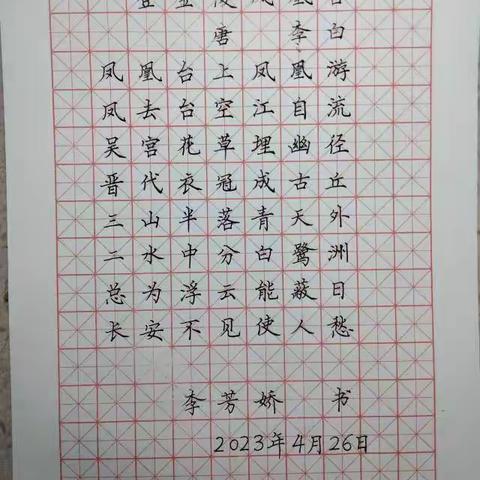 唐 李白
凤凰台上凤凰游
凤去台空江自流
吴宫花草埋幽径
晋代衣冠成古丘
三山半落青天外
二水中分白鹭洲
总为浮云能蔽日
长安不见使人愁
李芳娇 书
2023年4月26日